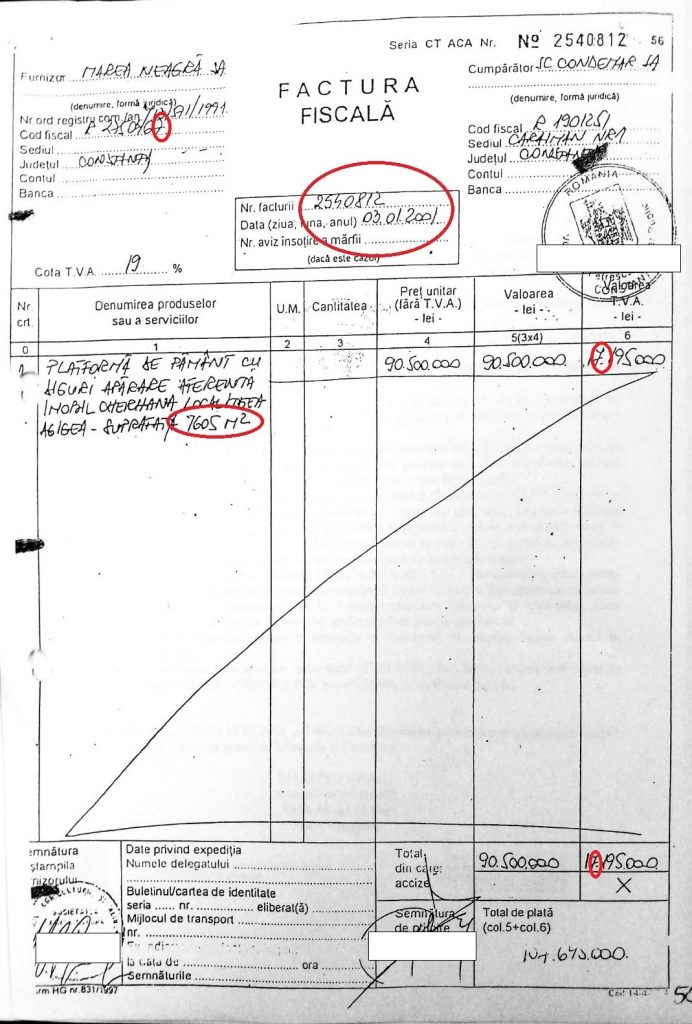 Seria CT ACA Nr. Nº 2540812 56
Furnizor MAREA NEAGRĂ SA
(denumire, formă juridică)
Nr ord registru com/an 1991
Cod fiscal R
Sediul
Județul CONSTANȚA
Contul
Banca
FACTURA
FISCALĂ
Cumpărător SC CONDEMAR SA
(denumire, formă juridică)
Cod fiscal R 190125
Sediul CARAIMAN NR 1
Județul CONSTANȚA
Contul
Banca
ROMANIA
Nr. facturii 2540812
Data (ziua, luna, anul) 03.01.2001
Nr. aviz însoțire a mărfii
(dacă este cazul)
Cota T.V.A. 19 %
Nr. crt. Denumirea produselor sau a serviciilor U.M. Cantitatea Preț unitar (fără T.V.A.) - lei - Valoarea - lei - Valoarea T.V.A. - lei -
0 1 2 3 4 5(3x4) 6
1 PLATFORMĂ DE PĂMÂNT CU 90.500.000 90.500.000 17.195.000
DIGURI APĂRARE AFERENTĂ
IMOBIL CHERHANA LOCALITATEA
AGIGEA - SUPRAFAȚĂ 7605 M2
Semnătura
ștampila
furnizorului
Date privind expediția
Numele delegatului
Buletinul/cartea de identitate
seria nr. eliberat(ă)
Mijlocul de transport
nr.
la data de ora
Semnăturile
Total 90.500.000 17.195.000
din care:
accize X
Semnătura
de primire
Total de plată
(col.5+col.6)
HG nr.831/1997
Cod 14-4